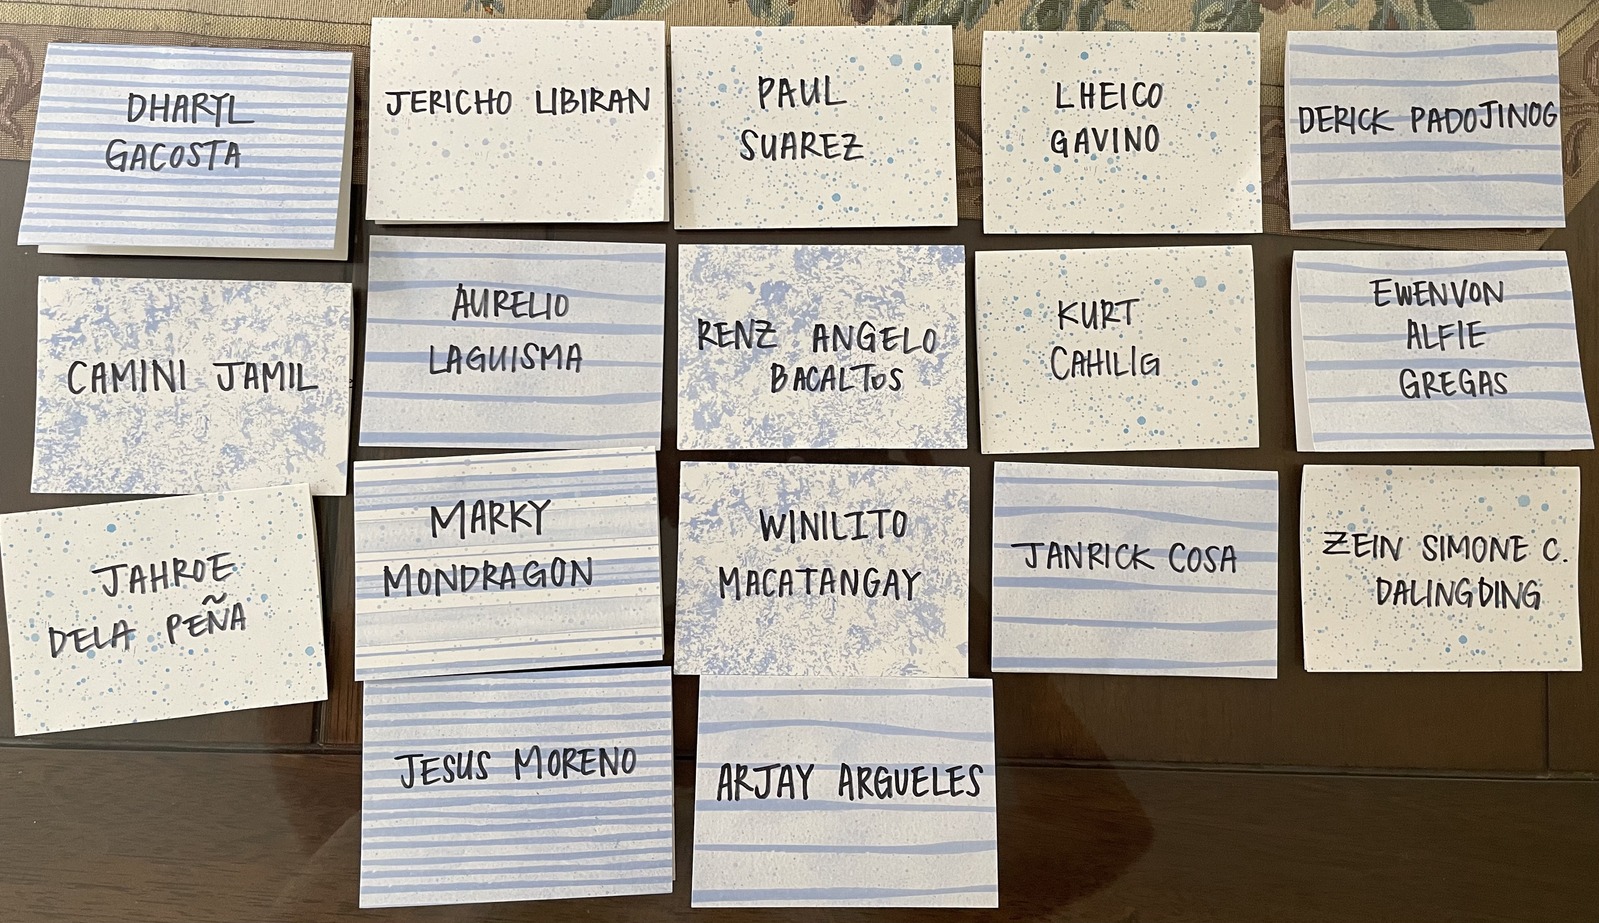 DHARYL
GACOSTA
JERICHO LIBIRAN
PAUL
SUAREZ
LHEICO
GAVINO
DERICK PADOJINOG
CAMINI JAMIL
AURELIO
LAGUISMA
RENZ ANGELO
BACALTOS
KURT
CAHILIG
EWENVON
ALFIE
GREGAS
JAHROE
DELA PEÑA
MARKY
MONDRAGON
WINILITO
MACATANGAY
JANRICK COSA
ZEIN SIMONE C.
DALINGDING
JESUS MORENO
ARJAY ARGUELES